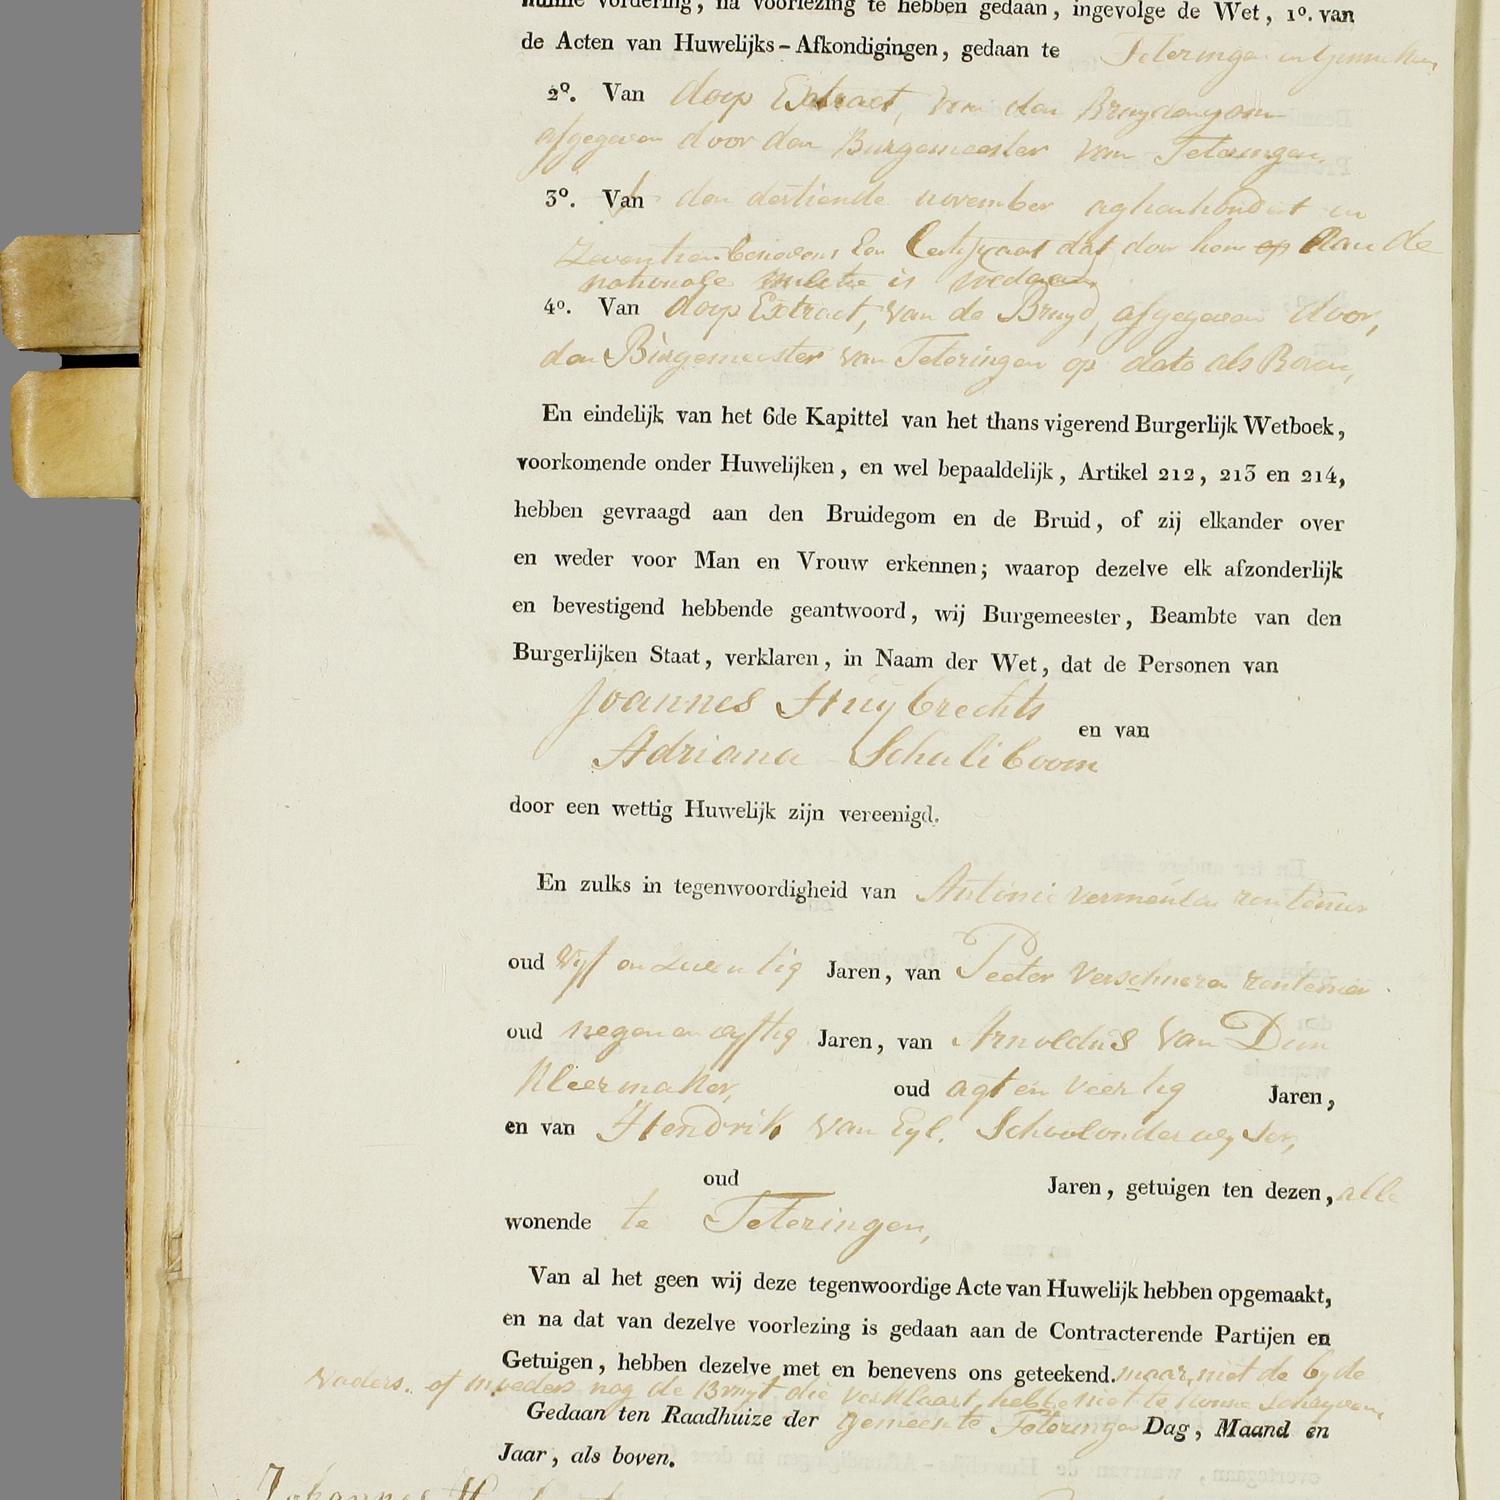 hunne vordering, na voorlezing te hebben gedaan, ingevolge de Wet, 1o. van
de Acten van Huwelijks-Afkondigingen, gedaan te Teteringe en Ginneken
2o. Van doop Extract, van den Bruydengom
afgegeven door den Burgemeester van Teteringen,
3o. Van den dertiende november agtienhondert en
zeventien benevens Een Certifycaat dat door hem op Aan de
nationale militie is voldaan
4o. Van doop Extract, van de Bruyd, afgegeven door,
den Burgemeester van Teteringen op dato als Boven,
En eindelijk van het 6de Kapittel van het thans vigerend Burgerlijk Wetboek,
voorkomende onder Huwelijken, en wel bepaaldelijk, Artikel 212, 213 en 214,
hebben gevraagd aan den Bruidegom en de Bruid, of zij elkander over
en weder voor Man en Vrouw erkennen; waarop dezelve elk afzonderlijk
en bevestigend hebbende geantwoord, wij Burgemeester, Beambte van den
Burgerlijken Staat, verklaren, in Naam der Wet, dat de Personen van
Joannes Huybrechts
en van
Adriana Schaliboom
door een wettig Huwelijk zijn vereenigd.
En zulks in tegenwoordigheid van Antonie vermeulen rentenier
oud vyf en Twentig Jaren, van Peeter verschueren rentenier
oud negen en vyftig Jaren, van Arnoldus Van Dun
Kleermaker, oud agt en veertig Jaren,
en van Hendrik van Eyl. Schoolonderwyser,
oud Jaren, getuigen ten dezen, alle
wonende te Teteringen,
Van al het geen wij deze tegenwoordige Acte van Huwelijk hebben opgemaakt,
en na dat van dezelve voorlezing is gedaan aan de Contracterende Partijen en
Getuigen, hebben dezelve met en benevens ons geteekend. maar niet de byde
vaders. of moeders nog de Bruyt die verklaart, hebbe niet te konne Schryven,
Gedaan ten Raadhuize der gemeente Teteringe Dag, Maand en
Jaar, als boven.
Johannes